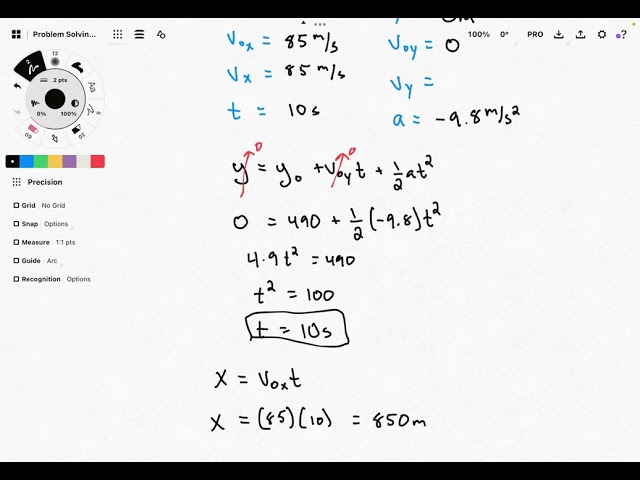 Problem Solvin...
100% 0° PRO
12
2
2 pts
Aa
0% 100%
60
5
Precision
Grid No Grid
Snap Options
Measure 1:1 pts
Guide Arc
Recognition Options
0m
V₀ₓ = 85 m/s V₀y = 0
Vₓ = 85 m/s Vy =
t = 10s a = -9.8 m/s²
0 0
y = y₀ + V₀yt + 1/2 at²
0 = 490 + 1/2 (-9.8)t²
4.9t² = 490
t² = 100
t = 10s
X = V₀ₓt
X = (85)(10) = 850m